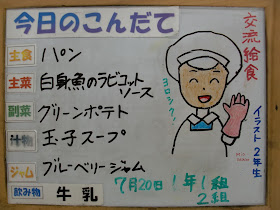 今日のこんだて
主食 パン
主菜 白身魚のラビコット
ソース
副菜 グリーンポテト
汁物 玉子スープ
ジャム ブルーベリージャム
飲み物 牛乳
交流給食
ヨロシク!
イラスト2年生
7月20日 1年1組
2組